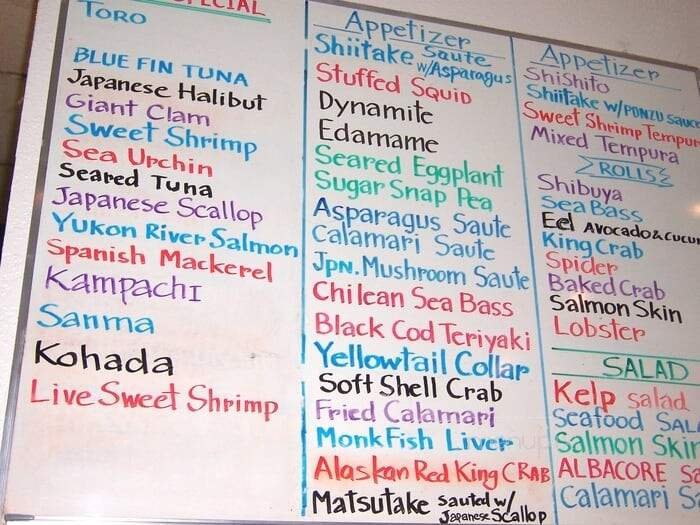 TORO
BLUE FIN TUNA
Japanese Halibut
Giant Clam
Sweet Shrimp
Sea Urchin
Seared Tuna
Japanese Scallop
Yukon River Salmon
Spanish Mackerel
Kampachi
Sanma
Kohada
Live Sweet Shrimp
Appetizer
Shiitake Saute
w/Asparagus
Stuffed Squid
Dynamite
Edamame
Seared Eggplant
Sugar Snap Pea
Asparagus Saute
Calamari Saute
JPN. Mushroom Saute
Chilean Sea Bass
Black Cod Teriyaki
Yellowtail Collar
Soft Shell Crab
Fried Calamari
Monk Fish Liver
Alaskan Red King CRAB
Matsutake sauted w/
Japanese Scallop
Appetizer
Shishito
Shiitake w/PONZU sauce
Sweet Shrimp Tempur
Mixed Tempura
ROLLS
Shibuya
Sea Bass
Eel Avocado & Cucu
King Crab
Spider
Baked Crab
Salmon Skin
Lobster
SALAD
Kelp salad
Seafood SAL
Salmon Skin
ALBACORE Sa
Calamari S